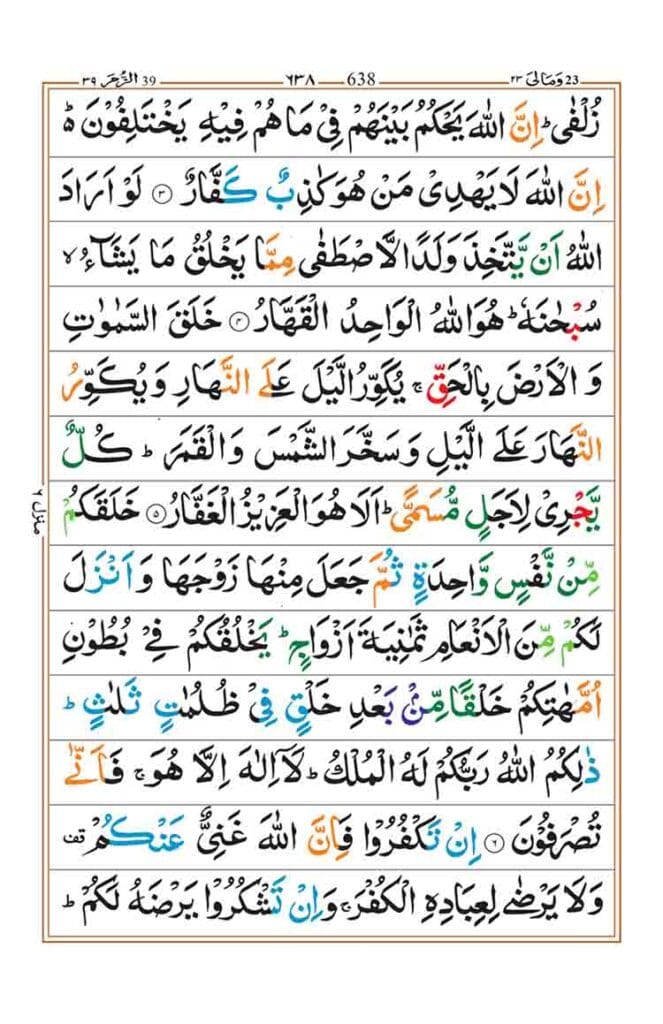 ٣٩ الزُّمَر 39
٦٣٨ 638
٢٣ وَمَالِىَ 23
زُلْفٰىؕ اِنَّ اللّٰهَ يَحْكُمُ بَيْنَهُمْ فِىْ مَا هُمْ فِيْهِ يَخْتَلِفُوْنَ ؕ۬
اِنَّ اللّٰهَ لَا يَهْدِىْ مَنْ هُوَ كٰذِبٌ كَفَّارٌ ﴿۳﴾ لَوْ اَرَادَ
اللّٰهُ اَنْ يَّتَّخِذَ وَلَدًا لَّاصْطَفٰى مِمَّا يَخْلُقُ مَا يَشَآءُ ۙ
سُبْحٰنَهٗ ؕ هُوَ اللّٰهُ الْوَاحِدُ الْقَهَّارُ ﴿۴﴾ خَلَقَ السَّمٰوٰتِ
وَالْاَرْضَ بِالْحَقِّ ۚ يُكَوِّرُ الَّيْلَ عَلَى النَّهَارِ وَيُكَوِّرُ
النَّهَارَ عَلَى الَّيْلِ وَسَخَّرَ الشَّمْسَ وَالْقَمَرَ ؕ كُلٌّ
يَّجْرِىْ لِاَجَلٍ مُّسَمًّى ؕ اَلَا هُوَ الْعَزِيْزُ الْغَفَّارُ ﴿۵﴾ خَلَقَكُمْ
مِّنْ نَّفْسٍ وَّاحِدَةٍ ثُمَّ جَعَلَ مِنْهَا زَوْجَهَا وَاَنْزَلَ
لَكُمْ مِّنَ الْاَنْعَامِ ثَمٰنِيَةَ اَزْوَاجٍ ؕ يَخْلُقُكُمْ فِىْ بُطُوْنِ
اُمَّهٰتِكُمْ خَلْقًا مِّنْۢ بَعْدِ خَلْقٍ فِىْ ظُلُمٰتٍ ثَلٰثٍ ؕ
ذٰلِكُمُ اللّٰهُ رَبُّكُمْ لَهُ الْمُلْكُ ؕ لَاۤ اِلٰهَ اِلَّا هُوَ ۚ فَاَنّٰى
تُصْرَفُوْنَ ﴿۶﴾ اِنْ تَكْفُرُوْا فَاِنَّ اللّٰهَ غَنِىٌّ عَنْكُمْ قف
وَلَا يَرْضٰى لِعِبَادِهِ الْكُفْرَ ۚ وَاِنْ تَشْكُرُوْا يَرْضَهُ لَكُمْ ؕ
منزل ٦